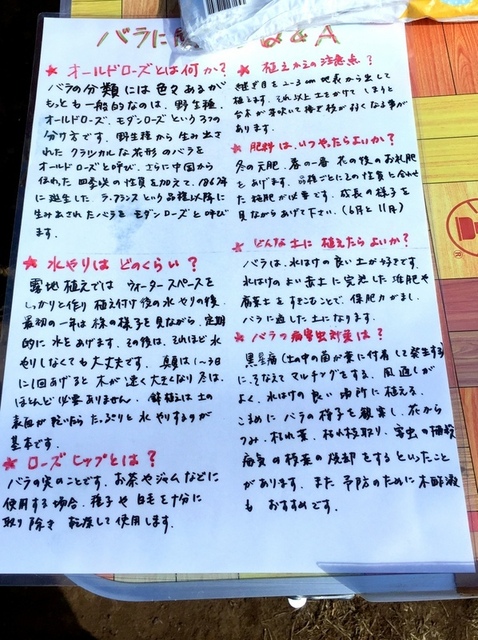 バラに関 Q&A
★ オールドローズとは何か?
バラの分類には色々あるが
もっとも一般的なのは、野生種、
オールドローズ、モダンローズという3つの
分け方です。野生種から生み出さ
れたクラシカルな花形のバラを
オールドローズと呼び、さらに中国から
伝わった四季咲の性質を加えて、1867年
に誕生した、ラ・フランスという品種以降に
生み出されたバラをモダンローズと呼び
ます。
★ 水やりはどのくらい?
露地植えでは ウォータースペースを
しっかりと作り 植え付け後の水やりの後、
最初の一年は株の様子を見ながら、定期
的に水をあげます。その後は、それほど水
やりしなくても大丈夫です。真夏は1〜3日
に1回あげると 木が速く大きくなり冬は、
ほとんど必要ありません。鉢植えは土の
表面が乾いたらたっぷりと水やりするのが
基本です。
★ ローズヒップとは?
バラの実のことです。お茶やジャムなどに
使用する場合、種子や白毛を十分に
取り除き 乾燥して使用します。
★ 植えかえの注意点?
継ぎ目を2〜3cm地表から出して
植えます。それ以上土をかけてしまうと
台木が芽吹いて接ぎ穂が弱くなる事が
あります。
★ 肥料は、いつやったらよいか?
冬の元肥、春の一番花の後のお礼肥
をあげます。品種ごとに土の性質と合わせ
た施肥が必要です。成長の様子を
見ながらあげて下さい。(6月と11月)
★ どんな土に植えたらよいか?
バラは、水はけの良い土が好きです。
水はけのよい赤土に完熟した堆肥や
腐葉土をすきこむことで、保肥力がまし、
バラに適した土になります。
★ バラの病害虫対策は?
黒星病(土の中の菌が葉に付着して発生する)
にそなえてマルチングをする。風通しが
よく、水はけの良い場所に植える。
こまめにバラの様子を観察し、花から
つみ、枯れ葉、枯れ枝取り、害虫の捕殺
病気の枝葉の焼却をするといったこと
があります。また 予防のために木酢液
も おすすめです。